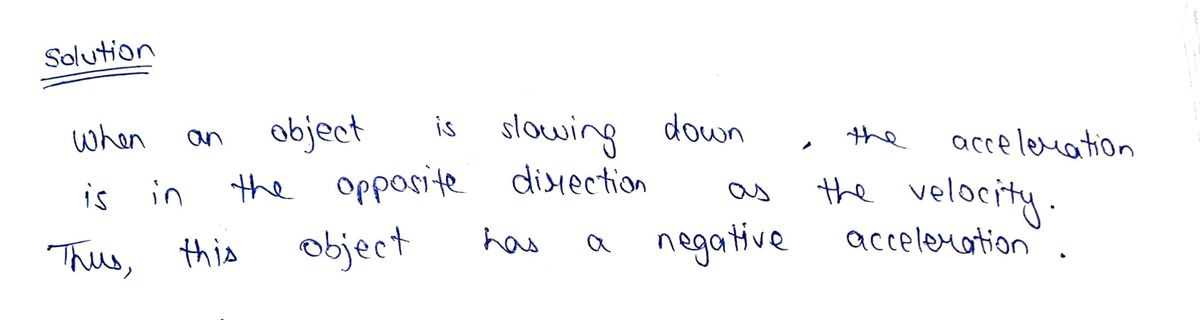 Solution
When an object is slowing down, the acceleration
is in the opposite direction as the velocity.
Thus, this object has a negative acceleration.